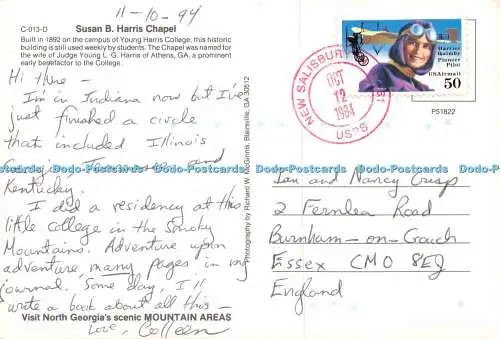 11-10-94
C-013-D Susan B. Harris Chapel
Built in 1892 on the campus of Young Harris College, this historic
building is still used weekly by students. The Chapel was named for the
wife of Judge Young L. G. Harris of Athens, GA, a prominent
early benefactor to the College.
Hi there -
I'm in Indiana now but I've
just finished a circle
that included Illinois
and
Kentucky.
I did a residency at this
little college in the Smoky
Mountains. Adventure upon
adventure many pages in my
journal. Some day, I'll
write a book about all this -
Love, Colleen
Visit North Georgia's scenic MOUNTAIN AREAS
Photography by Richard W. McGinnis, Blairsville, GA 30512
NEW SALISBURY
OCT
12
1994
USPS
Harriet
Quimby
Pioneer
Pilot
USAirmail
50
PS1822
Ian and Nancy Crisp
2 Fernlea Road
Burnham-on-Crouch
Essex CM0 8EJ
England
Dodo-Postcards.com Dodo-Postcards.com Dodo-Postcards.com Dodo-Postcards.com